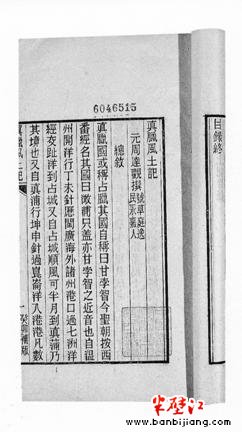 目錄終
6046515
眞臘風土記
元周達觀撰號草庭逸
民永嘉人
總敘
眞臘國或稱占臘其國自稱曰甘孛智今聖朝按西
番經名其國曰澉浦只蓋亦甘孛智之近音也自溫
州開洋行丁未針歷閩廣海外諸州港口過七洲洋
經交趾洋到占城又自占城順風可半月到眞蒲乃
其境也又自眞蒲行坤申針過崑崙洋入港港凡數
眞臘風土記
一
半壁江
www.banbijiang.com